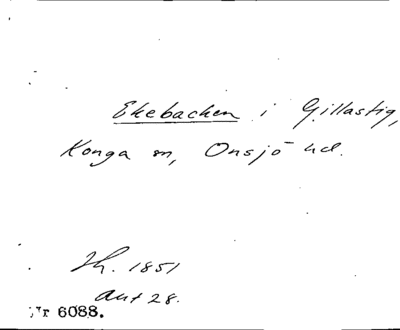 Ekebacken i Gillastig,
Konga sn, Onsjö hd.
Th. 1851
Ant 28.
Nr 6088.